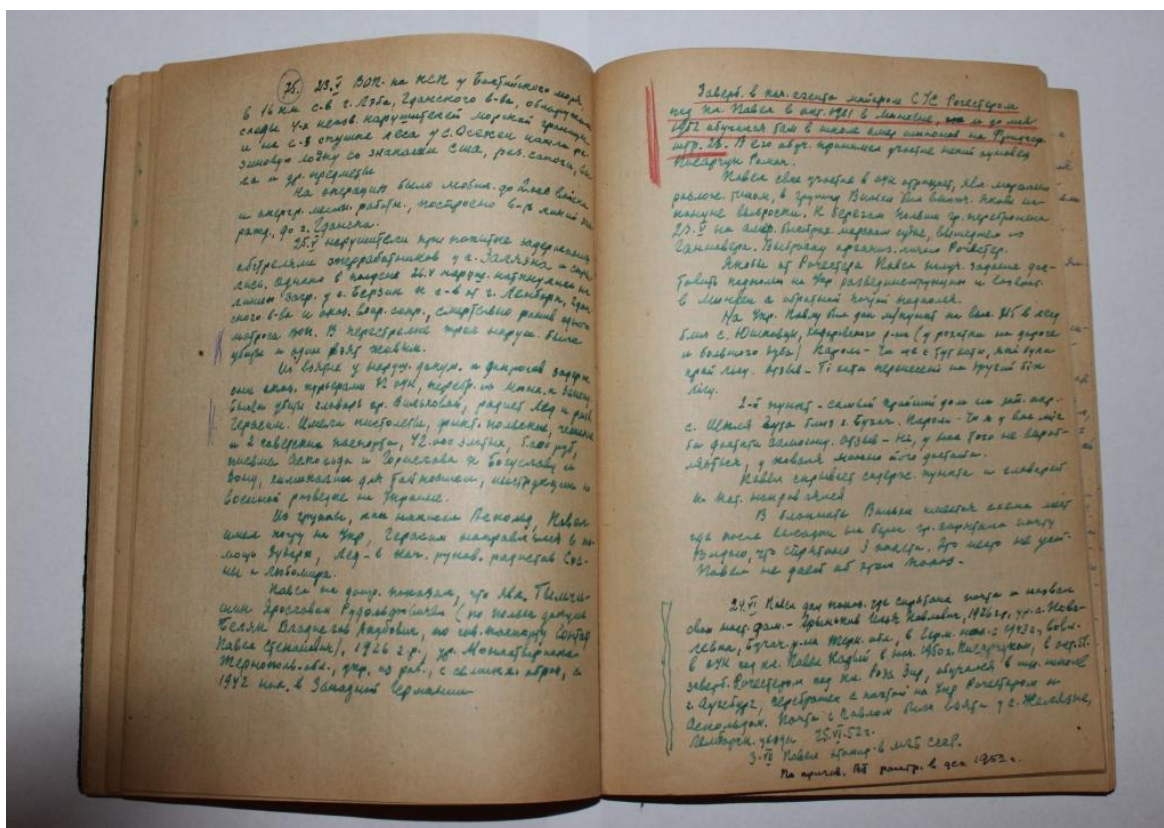 75. 23.V ВОП. на КСП у Балтийского моря
в 16 км с-в г. Лэба, Гданского в-ва, обнаружила
следы 4-х неизв. нарушителей морской границы
и на с-в опушке леса у с. нашли ре-
зиновую лодку со знаками Сша, рез. сапоги,
и др. предметы
На операцию было мобил. до войска
и опергр. работн., построено 6-ть линий
до г. Гданска.
25.V нарушители при попытке задержания
обстреляли оперработников у г. и скры
лись, однако в полдень 26.V наруш. наткнулись на
линию загр. у с. к с-в от г. Лемборк, Гдан
ского в-ва и оказ. воор. сопр., смертельно ранив одного
матроса ВОП. В перестрелке трое наруш. были
убиты и один взят живым.
Из взятых у наруш. докум. и допросов задерж
они оказ. курьерами ОУН, перебр. из к
Были убиты главарь гр. Вильховый, радист Лед и
Герасим. Имели пистолеты, фикт. польские,
и 2 советских паспорта, 42.000 злотых, 5.000 руб,
письма Аскольда и Горислава к Богуславу и
Зону, для тайнописи, инструкции по
военной разведке на Украине.
Из группы, как написал Аскольд, Павел
имел почту на Укр, Герасим направлялся в по-
мощь , Лед - в кач. руков. радистов
и Любомира.
Павел на допр. показал, что явл.
Ярославом Рудольфовичем (по польск докум
Белян Владислав Якубович, по сов. паспорту
Павел Степанович), 1926 г.р., ур. Монастыриска
Тернополь. обл., укр, из раб., с селянск. образ, с
1942 нах. в Западной Германии

Заверб. в кач. агента майором СИС Рочестером
под кл. Павел в окт. 1951 в Мюнхене, и до мая
1952 обучался там в школе амер шпионов на
штр. 28. В его обуч. принимал участие некий оуновец
Писарчук Роман.
Павел свое участие в ОУН отрицает, явл. морально
разлож. типом, в группу Вильхи был включ. якобы на-
кануне выброски. К берегам Польши гр. переброшена
23.V на амер. быстрох морском судне, из
Ганновера. Выброску организ. лично Рочестер.
Якобы от Рочестера Павел получ. задание дос-
тавить подполью на Укр развединструкции и возврат.
в Мюнхен с обратной почтой подполья.
На Укр. Павлу был дан м/пункт на выс. 315 в лесу
близ с. Юшковцы, Ходоровского р-на (у развилки дороги
и большого дуба) Пароль - Чи це є тут хати, які були
край лісу. Отзыв - Ті хати перенесені на другий бік
лісу.
2-й пункт - самый крайний дом на
с. близ г. Бучач. Пароль - Чи я у вас міг
би дістати . Отзыв - Ні, у нас того не вироб-
ляється, у коваля можна його дістати.
Павел скрывает содерж. пункта и главарей
к кот. направлялся
В блокноте Вильхи имеется схема мест
где после высадки на берег гр. спрятала почту
Видно, что спрятано 3 пакета. Это место не уст.
Павел не дает об этом показ.
24.VI Павел дал показ. где спрятана почта и назвал
свои наст. дан. - Гринькив Илья Павлович, 1926 г., ур. г. Нова-
ставка, Бучач. р-на Терн. обл., в Герм. нах. с 1943 г., вовл-
в ОУН под кл. Павел в нач. 1950 г. Писарчуком, в окт. 51.
заверб. Рочестером под кл. Роза Зир, обучался в шп. школе
г. Аугсбург, переброшен с почтой на Укр Рочестером и
Аскольдом. Почта с Павлом была взята у с. ,
Лемборк. уезда 25.VI.52 г.
3.VII Павел этапир. в МГБ СССР.
По пригов. ВТ расстр. в дек 1952 г.